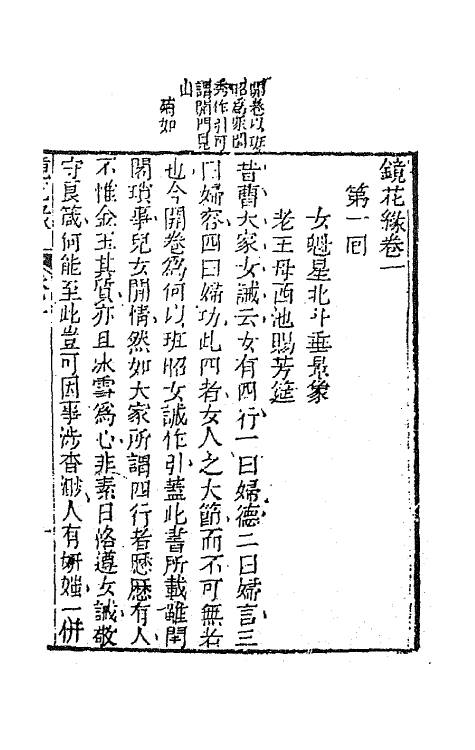 開卷以班
昭爲衆閨
秀作引可
謂開門見
山
蒨如
鏡花緣卷一
第一回
女魁星北斗垂景象
老王母西池賜芳筵
昔曹大家女誡云女有四行一曰婦德二曰婦言三
曰婦容四曰婦功此四者女人之大節而不可無者
也今開卷爲何以班昭女誡作引蓋此書所載雖閨
閣瑣事兒女閒情然如大家所謂四行者歷歷有人
不惟金玉其質亦且冰雪爲心非素日恪遵女誡敬
守良箴何能至此豈可因事涉杳渺人有妍媸一併